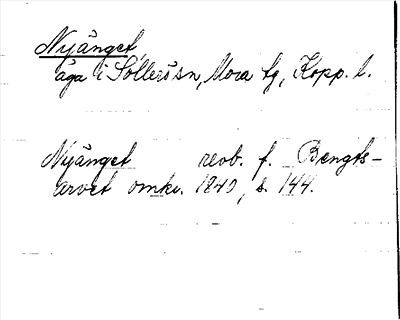 Nyänget,
äga i Sollerö sn, Mora tg, Kopp. l.
Nyänget reob. f. Bengts-
arvet omkr. 1840, s. 144.